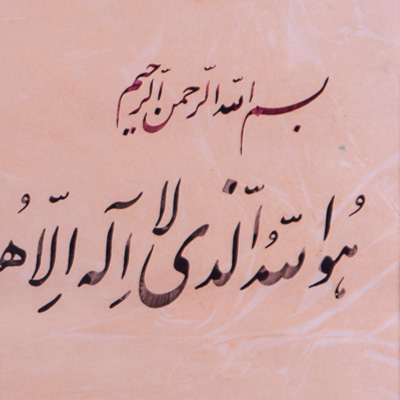 بسم الله الرحمن الرحیم
هُوَ اللهُ الَّذی لا اِلٰه اِلّا هُ